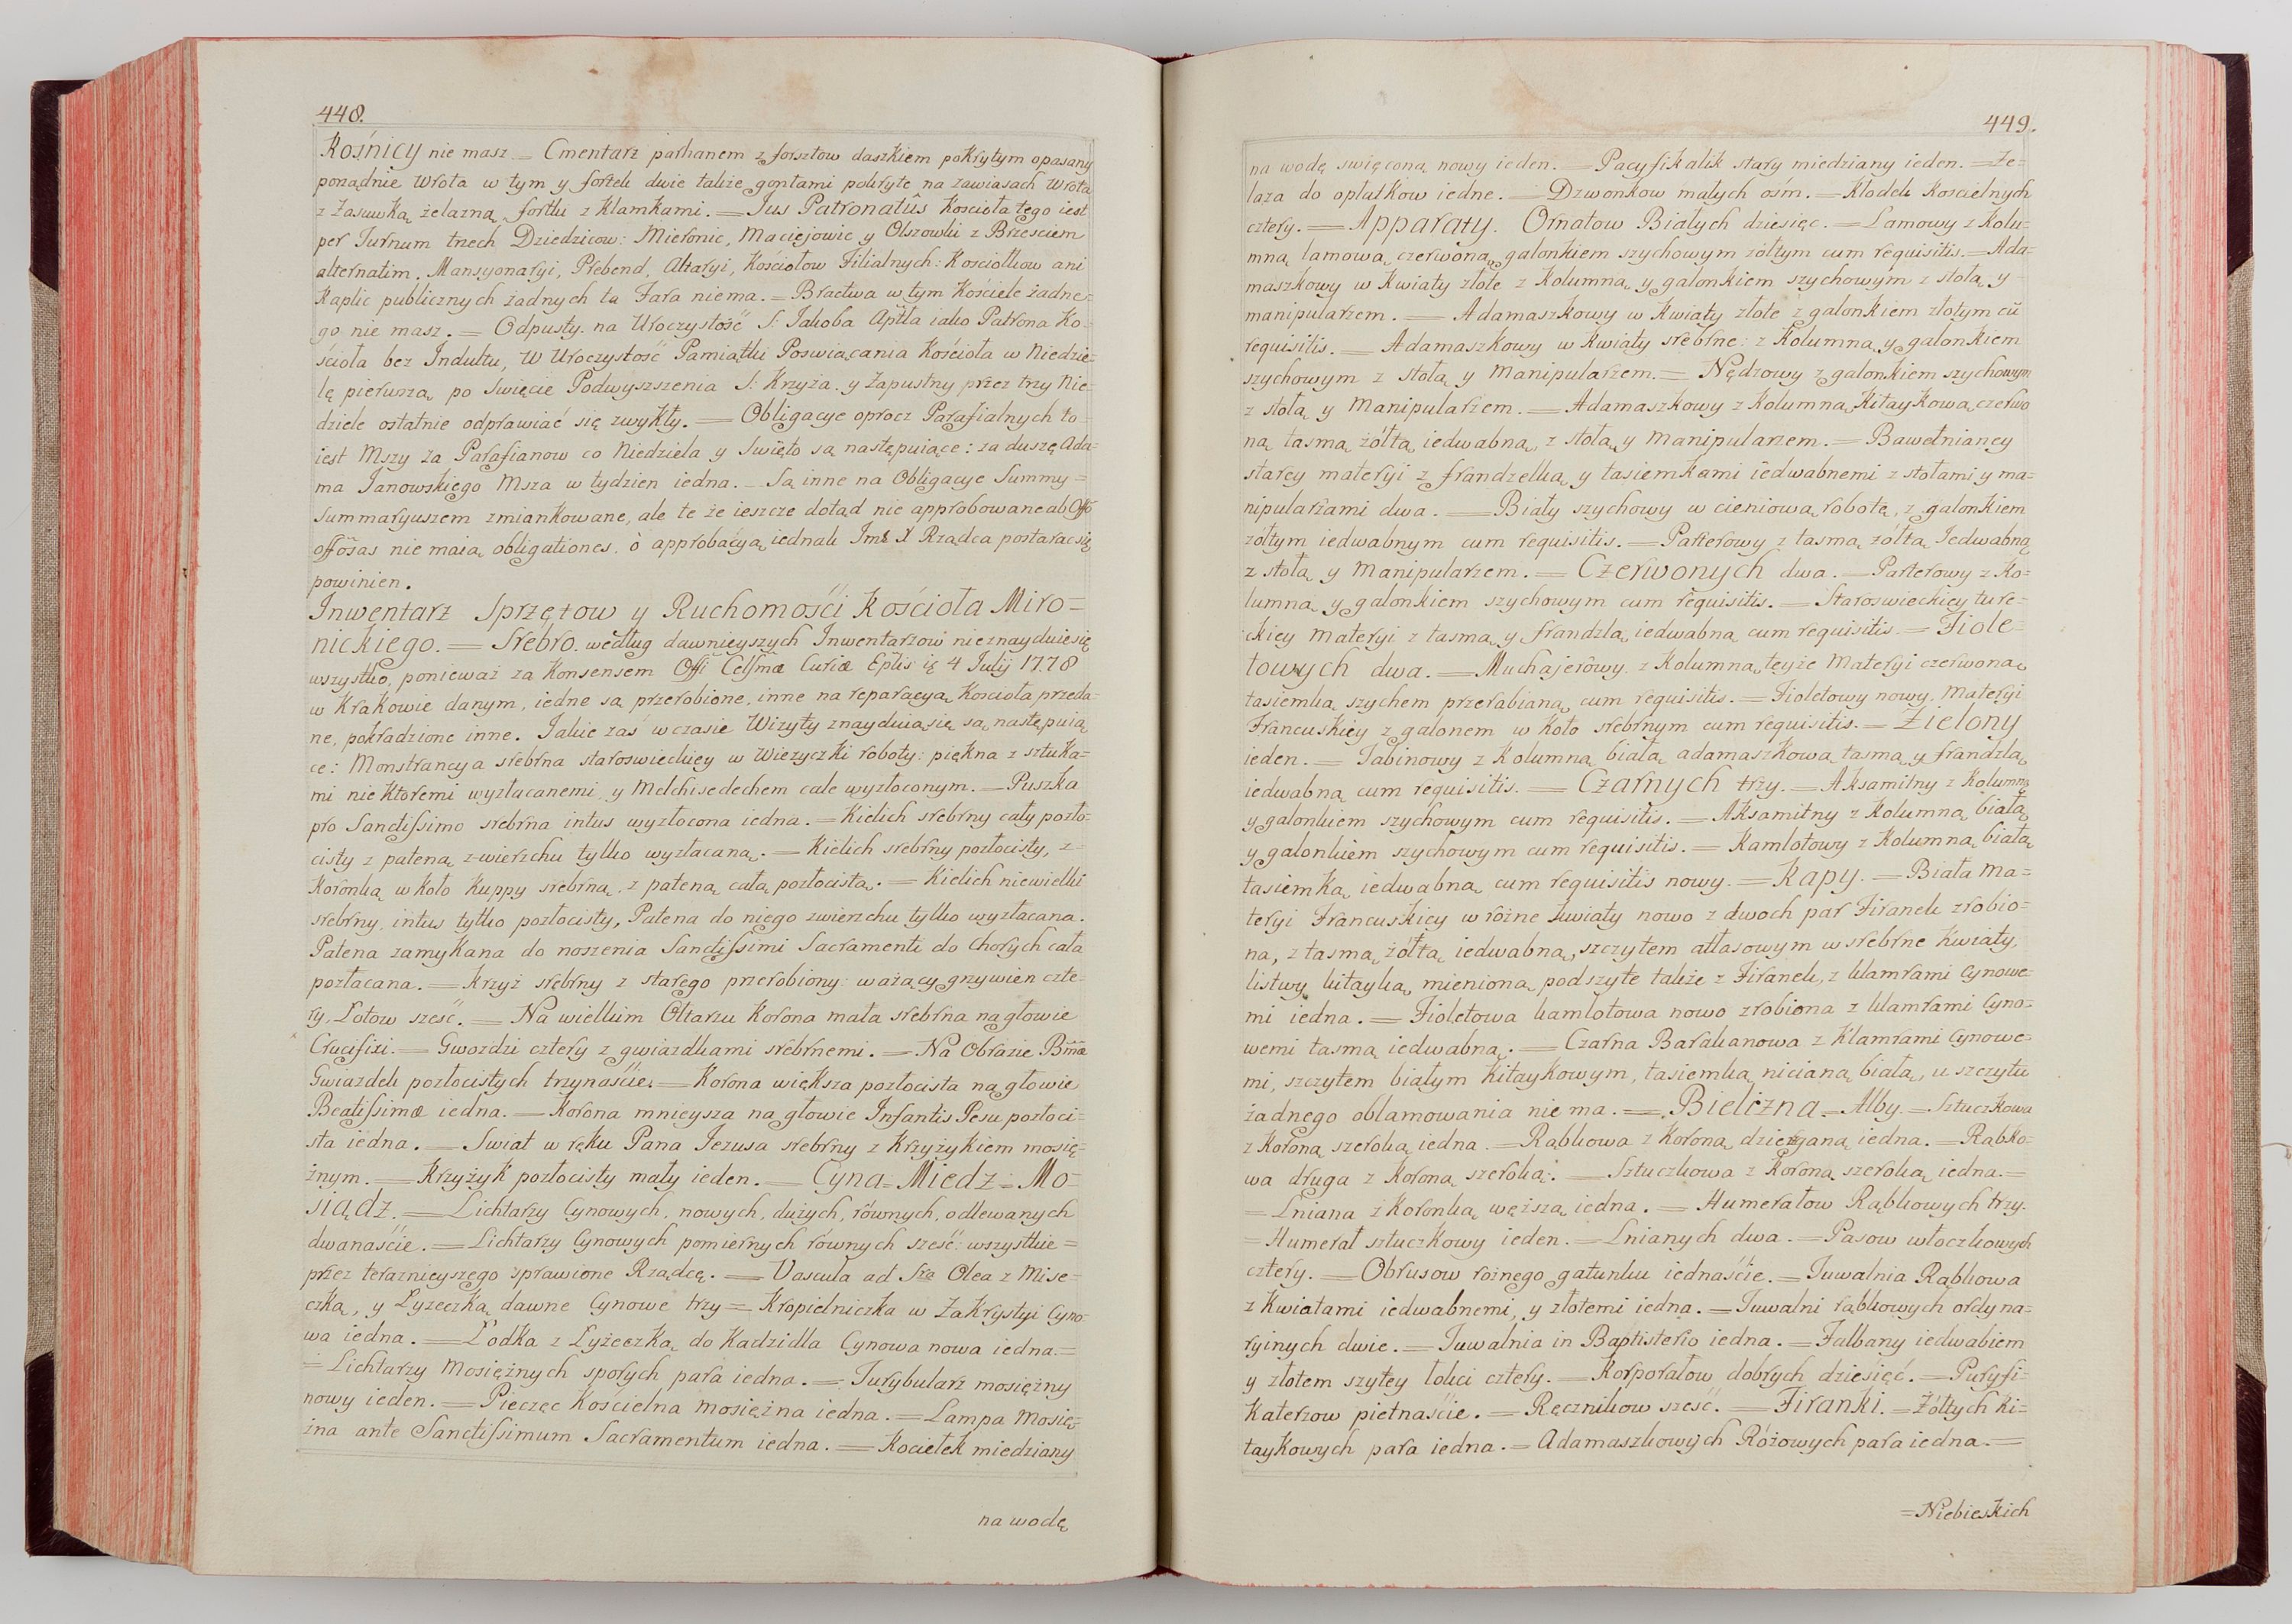 448.
Kośnicy nie masz = Cmentarz parkanem z forsztow daszkiem pokrytym opasany
porządnie Wrota w tym y fortek dwie także gontami pokryte na zawiasach Wrota
z Zasuwką żelazną, fortki z Klamkami. = Jus Patronatûs Kościoła tego iest
per Turnum trzech Dziedzicow: Mieronic, Maciejowic y Olszowki z Brzesciem
alternatim. Mansyonaryi, Prebend, Altaryi, Kościołow Filialnych: Kosciołkow ani
Kaplic publicznych żadnych ta Fara niema. = Bractwa w tym Kościele żadne-
go nie masz. = Odpusty na Uroczystość S: Jakoba Aptła iako Patrona Ko-
ścioła bez Indultu, W Uroczystość Pamiątki Poswiącania Kościoła w Niedzie-
lę pierwszą, po Swięcie Podwyszszenia S: Krzyża y Zapustny przez trzy Nie-
dziele ostatnie odprawiać się zwykły. = Obligacye oprocz Parafialnych to
iest Mszy za Parafianow co Niedziela y Swięto są następuiące: za duszę Ada-
ma Janowskiego Msza w tydzien iedna. = Są inne na Obligacye Summy =
Summaryuszem zmiankowane, ale te że ieszcze dotąd nie approbowane ab Offo
offosas nie maią obligationes, ò approbacyą iednak Jmć X Rządca postarac się
powinien.
Inwentarz Sprzętow y Ruchomośći Kościoła Miro=
nickiego. = Srebro. według dawnieyszych Inwentarzow nieznayduie się
wszystko, ponieważ za Konsensem Offi Celsmæ Curiæ Eplis 4 Julij 1778
w Krakowie danym, iedne są przerobione, inne na reparacyą Kościoła przeda-
ne, pokradzione inne. Jakie zaś w czasie Wizyty znayduią się są następuią
ce: Monstrancya srebrna staroswieckiey w Wieżyczki roboty: piękna z sztuka-
mi niektoremi wyzłacanemi y Melchisedechem cale wyzłoconym. = Puszka
pro Sanctissimo srebrna intus wyzłocona iedna. = Kielich srebrny cały pozło-
cisty z pateną z wierzchu tylko wyzłacaną. = Kielich srebrny pozłocisty, z
Koronką w koło Kuppy srebrną, z pateną całą pozłocistą. = Kielich niewielki
srebrny, intus tylko pozłocisty, Patena do niego zwierzchu tylko wyzłacana.
Patena zamykana do noszenia Sanctissimi Sacramenti do Chorych cała
pozłacana. = Krzyż srebrny z starego przerobiony: ważący grzywien czte-
ry, Łotow sześć. = Na wielkim Ołtarzu Korona mała srebrna na głowie
Crucifixi. = Gwozdzi cztery z gwiazdkami srebrnemi. = Na Obrazie Bmæ
Gwiazdek pozłocistych trzynaście. = Korona większa pozłocista na głowie
Beatissimæ iedna. = Korona mnieysza na głowie Infantis Jesu pozłoci-
sta iedna. = Swiat w ręku Pana Jezusa srebrny z Krzyżykiem mosię-
żnym. = Krzyżyk pozłocisty mały ieden. = Cyna = Miedz = Mo-
siądz. = Lichtarzy Cynowych, nowych, dużych, równych, odlewanych
dwanaście. = Lichtarzy Cynowych pomiernych równych sześć: wszystkie =
przez teraznieyszego sprawione Rządcę. = Vascula ad Sra Olea z Mise-
czką, y Łyzeczką dawne Cynowe trzy = Kropielniczka w Zakrystyi Cyno-
wa iedna. = Łodka z Łyżeczką do Kadzidla Cynowa nowa iedna. =
= Lichtarzy Mosiężnych sporych para iedna. = Turybularz mosiężny
nowy ieden. = Pieczęc Koscielna mosiężna iedna. = Lampa Mosię-
żna ante Sanctissimum Sacramentum iedna. = Kociełek miedziany
na wodę
449.
na wodę swięconą nowy ieden. = Pacyfikalik stary miedziany ieden. = Że-
laza do opłatkow iedne. = Dzwonkow małych ośm. = Kłodek Koscielnych
cztery. = Apparaty. Ornatow Białych dziesięc. = Lamowy z Kolu-
mną lamową czerwoną galonkiem szychowym żółtym cum requisitis. = Ada-
maszkowy w Kwiaty złote z Kolumną y galonkiem szychowym z stołą y
manipularzem. = Adamaszkowy w Kwiaty złote z galonkiem złotym cũ
requisitis. = Adamaszkowy w Kwiaty srebrne: z Kolumną y galonkiem
szychowym z stołą y Manipularzem. = Nędzowy z galonkiem szychowym
z stołą y Manipularzem. = Adamaszkowy z Kolumną Kitaykową czerwo
ną tasmą żółtą iedwabną z stołą y Manipularzem. = Bawełniancy
starey materyi z frandzelką y tasiemkami iedwabnemi z stołami y ma-
nipularzami dwa. = Biały szychowy w cieniową robotę, z galonkiem
żółtym iedwabnym cum requisitis. = Parterowy z tasmą żółtą Jedwabną
z stołą y Manipularzem. = Czerwonych dwa. = Parterowy z Ko-
lumną y galonkiem szychowym cum requisitis. = Staroswieckiey ture-
ckiey Materyi z tasmą y frandzlą iedwabną cum requisitis. = Fiole-
towych dwa. = Muchajerowy z Kolumną teyże Materyi czerwoną
tasiemką szychem przerabianą cum requisitis. = Fioletowy nowy Materyi
Francuskiey z galonem w koło srebrnym cum requisitis. = Zielony
ieden. = Tabinowy z Kolumną białą adamaszkową tasmą y frandzlą
iedwabną cum requisitis. = Czarnych trzy. = Aksamitny z Kolumną
y galonkiem szychowym cum requisitis. = Aksamitny z Kolumną białą
y galonkiem szychowym cum requisitis. = Kamlotowy z Kolumną białą
tasiemką iedwabną cum requisitis nowy. = Kapy. = Biała Ma-
teryi Francuskiey w rożne kwiaty nowo z dwoch par Firanek zrobio-
na, z tasmą żółtą iedwabną, szczytem atłasowym w srebrne Kwiaty,
listwy kitayką mienioną podszyte także z Firanek, z klamrami Cynowe-
mi iedna. = Fioletowa kamlotowa nowo zrobiona z klamrami Cyno-
wemi tasmą iedwabną. = Czarna Barakanowa z Klamrami Cynowe-
mi, szczytem białym Kitaykowym, tasiemką nicianą białą, u szczytu
żadnego oblamowania nie ma. = Bielizna = Alby. = Sztuczkowa
z Koroną szeroką iedna. = Rąbkowa z Koroną dzierganą iedna. = Rąbko-
wa druga z Koroną szeroką. = Sztuczkowa z Koroną szeroką iedna. =
= Lniana z Koronką węższą iedna. = Humerałow Rąbkowych trzy.
= Humerał sztuczkowy ieden. = Lnianych dwa. = Pasow włoczkowych
cztery. = Obrusow rożnego gatunku iednaście. = Tuwalnia Rąbkowa
z Kwiatami iedwabnemi, y złotemi iedna. = Tuwalni rąbkowych ordyna-
ryinych dwie. = Tuwalnia in Baptisterio iedna. = Falbany iedwabiem
y złotem szytey łokci cztery. = Korporałow dobrych dziesięć. = Puryfi-
Katerzow pietnaście. = Ręcznikow sześć. = Firanki. = Żółtych Ki-
taykowych para iedna. = Adamaszkowych Różowych para iedna. =
= Niebieskich